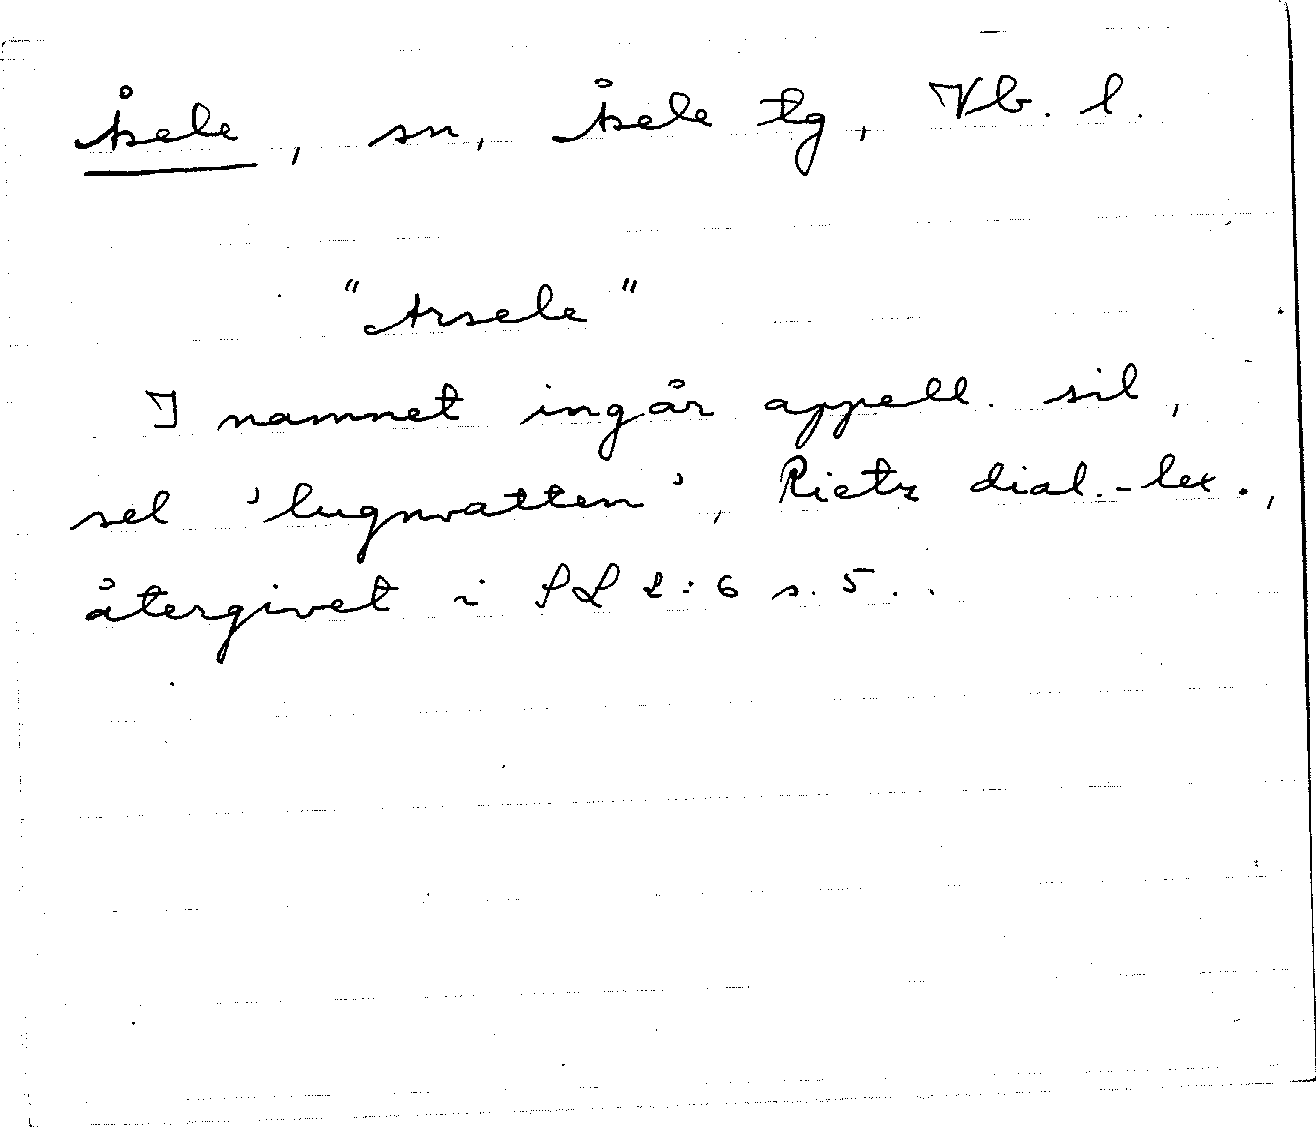 Åsele, sn, Åsele tg, Vb. l.
"Arsele"
I namnet ingår appell. sil,
sel 'lugnvatten', Rietz dial.-lex.,
återgivet i SL 2:6 s. 5..